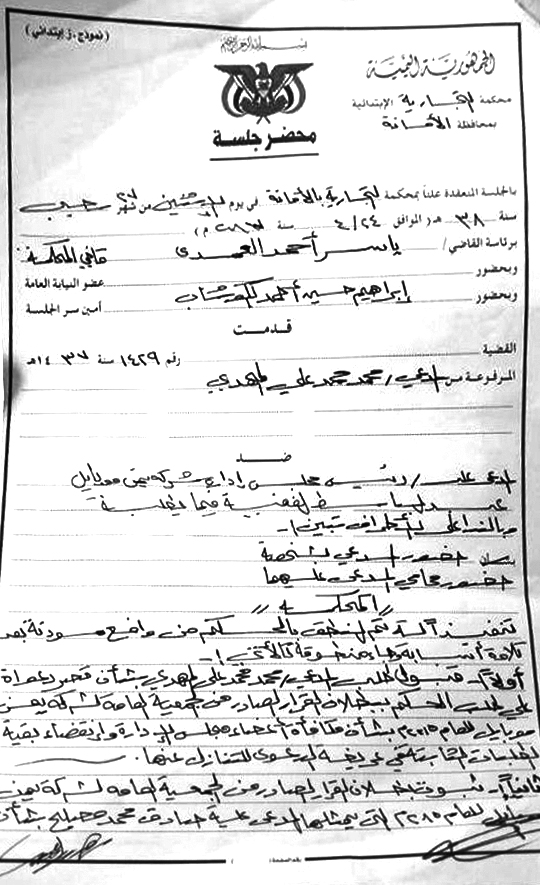 (نموذج ز ابتدائي)
بسم الله الرحمن الرحيم
الجمهورية اليمنية
محكمة التجارية الإبتدائية
بمحافظة الأمانة
محضر جلسة
بالجلسة المنعقدة علناً بمحكمة التجارية بالأمانة في يوم الإثنين ٢٧ من شهر رجب
سنة ٣٨ ١٤هـ (الموافق ٤/٢٤ سنة ٢٠١٧م)
برئاسة القاضي / ياسر أحمد العمدي قاضي المحكمة
وبحضور عضو النيابة العامة
وبحضور إبراهيم حسين أحمد أمين سر الجلسة
قدمت
القضية رقم ١٤٢٩ سنة ١٤٣٧هـ
المرفوعة من المدعي/ محمد محمد علي المهدي
ضد
المدعى عليه/ رئيس مجلس إدارة شركة يمن موبايل
وبالنداء على الأطراف تبين :-
حضور المدعي بشخصه
حضور محامي المدعى عليهما
// المحكمة //
تنفيذاً لـه تم النطق بالحكم من واقع مسودته بعد
تلاوة أسبابه وجاء منطوقه كالآتي :-
أولاً :- قبول طلب المدعي/ محمد محمد علي المهدي بشأن قصر دعواه
على طلب الحكم ببطلان القرار الصادر من الجمعية العامة لشركة يمن
موبايل للعام ٢٠١٥م بشأن مكافأة أعضاء مجلس الإدارة وإنقضاء بقية
الطلبات الثابتة في عريضة الدعوى للتنازل عنها.
ثانياً :- ثبوت بطلان القرار الصادر من الجمعية العامة لشركة يمن
موبايل للعام ٢٠١٥م التي يمثلها المدعى عليه صادق محمد مصلح بشأن